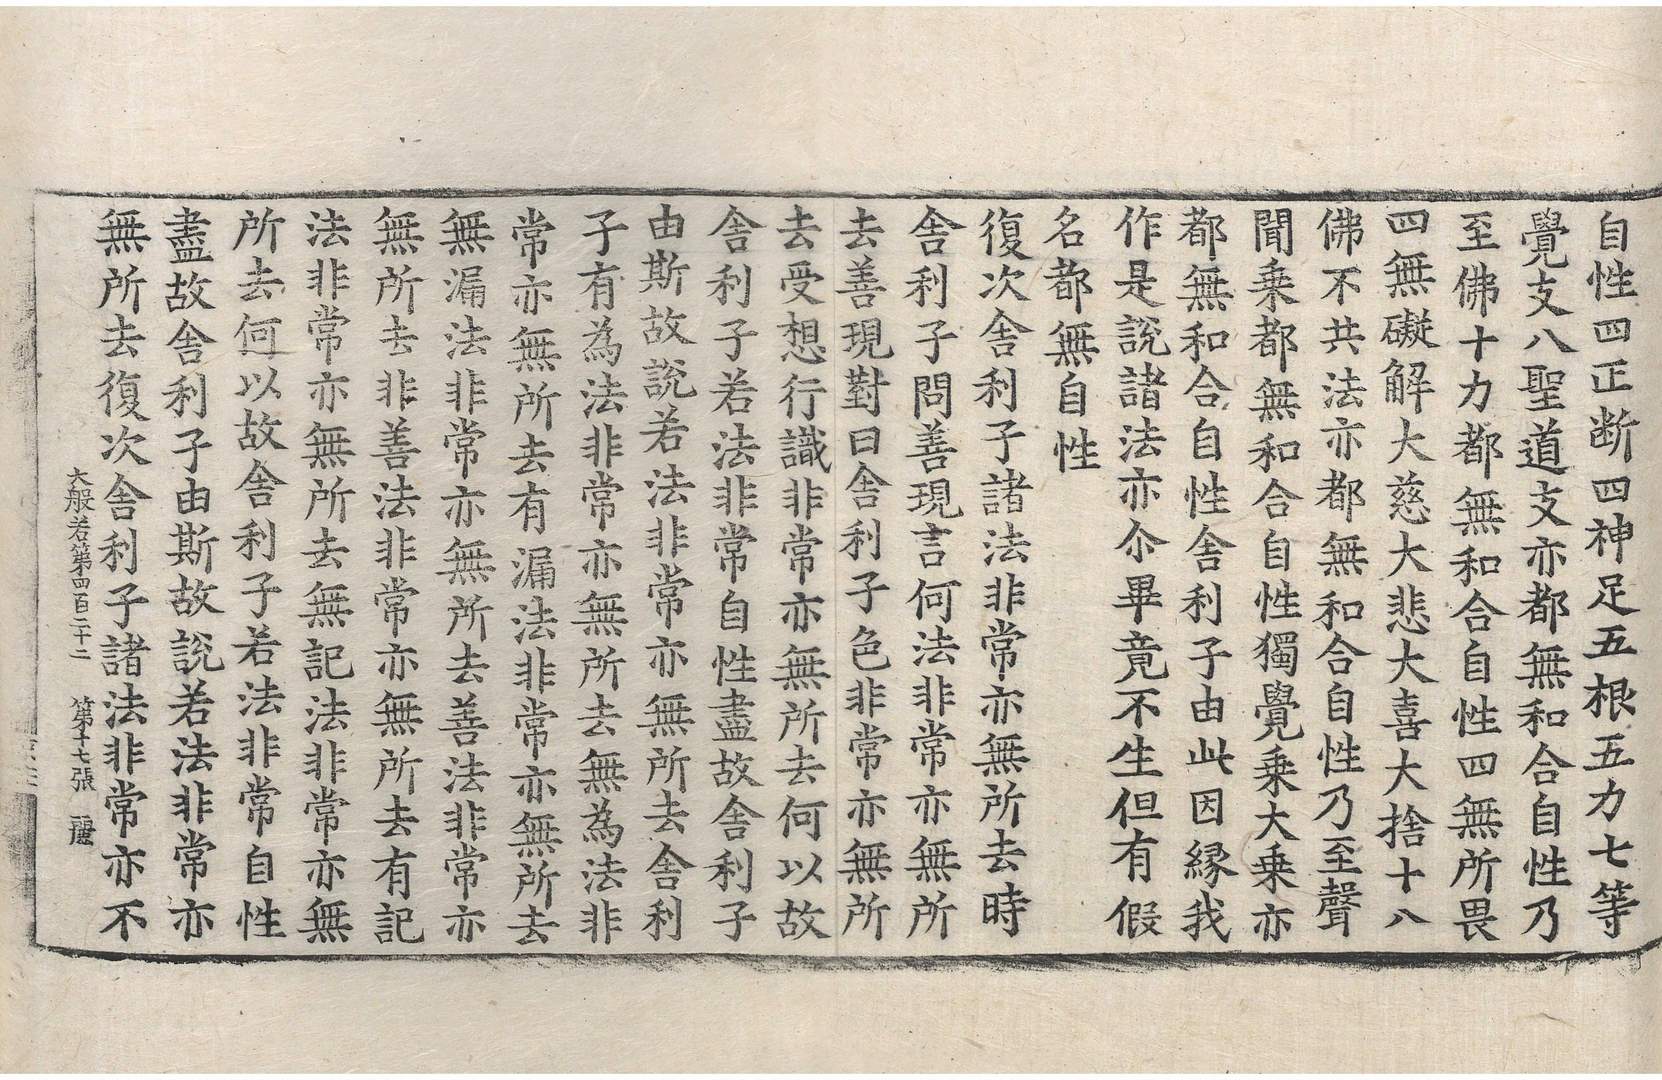 自性四正断四神足五根五力七等
覺支八聖道支亦都無和合自性乃
至佛十力都無和合自性四無所畏
四無礙解大慈大悲大喜大捨十八
佛不共法亦都無和合自性乃至聲
聞乗都無和合自性獨覺乗大乗亦
都無和合自性舍利子由此因縁我
作是說諸法亦尒畢竟不生但有假
名都無自性
復次舍利子諸法非常亦無所去時
舍利子問善現言何法非常亦無所
去善現對曰舍利子色非常亦無所
去受想行識非常亦無所去何以故
舍利子若法非常自性盡故舍利子
由斯故說若法非常亦無所去舍利
子有為法非常亦無所去無為法非
常亦無所去有漏法非常亦無所去
無漏法非常亦無所去善法非常亦
無所去非善法非常亦無所去有記
法非常亦無所去無記法非常亦無
所去何以故舍利子若法非常自性
盡故舍利子由斯故說若法非常亦
無所去復次舍利子諸法非常亦不
大般若第四百二十二 第十七張 麗